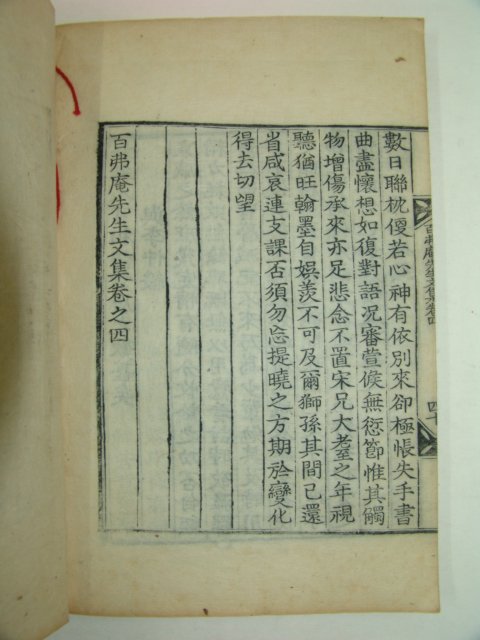 數日聯枕優若心神有依別來卻極悵失手書
曲盡懷想如復對語况審萱候無愆節惟其觸
物增傷承來亦足悲念不置宋兄大耋之年視
聽猶旺翰墨自娛羨不可及爾獅孫其間已還
省咸哀連支課否須勿忘提曉之方期於變化
得去切望
百弗庵先生文集卷之四
百弗庵先生文集卷四